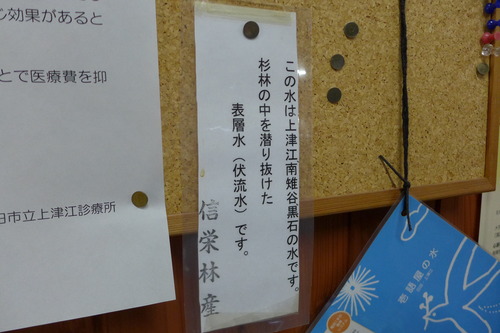 じ効果があると
とで医療費を抑
田市立上津江診療所
この水は上津江南雉谷黒石の水です。
杉林の中を潜り抜けた
表層水（伏流水）です。
信栄林産
壱語屋の水